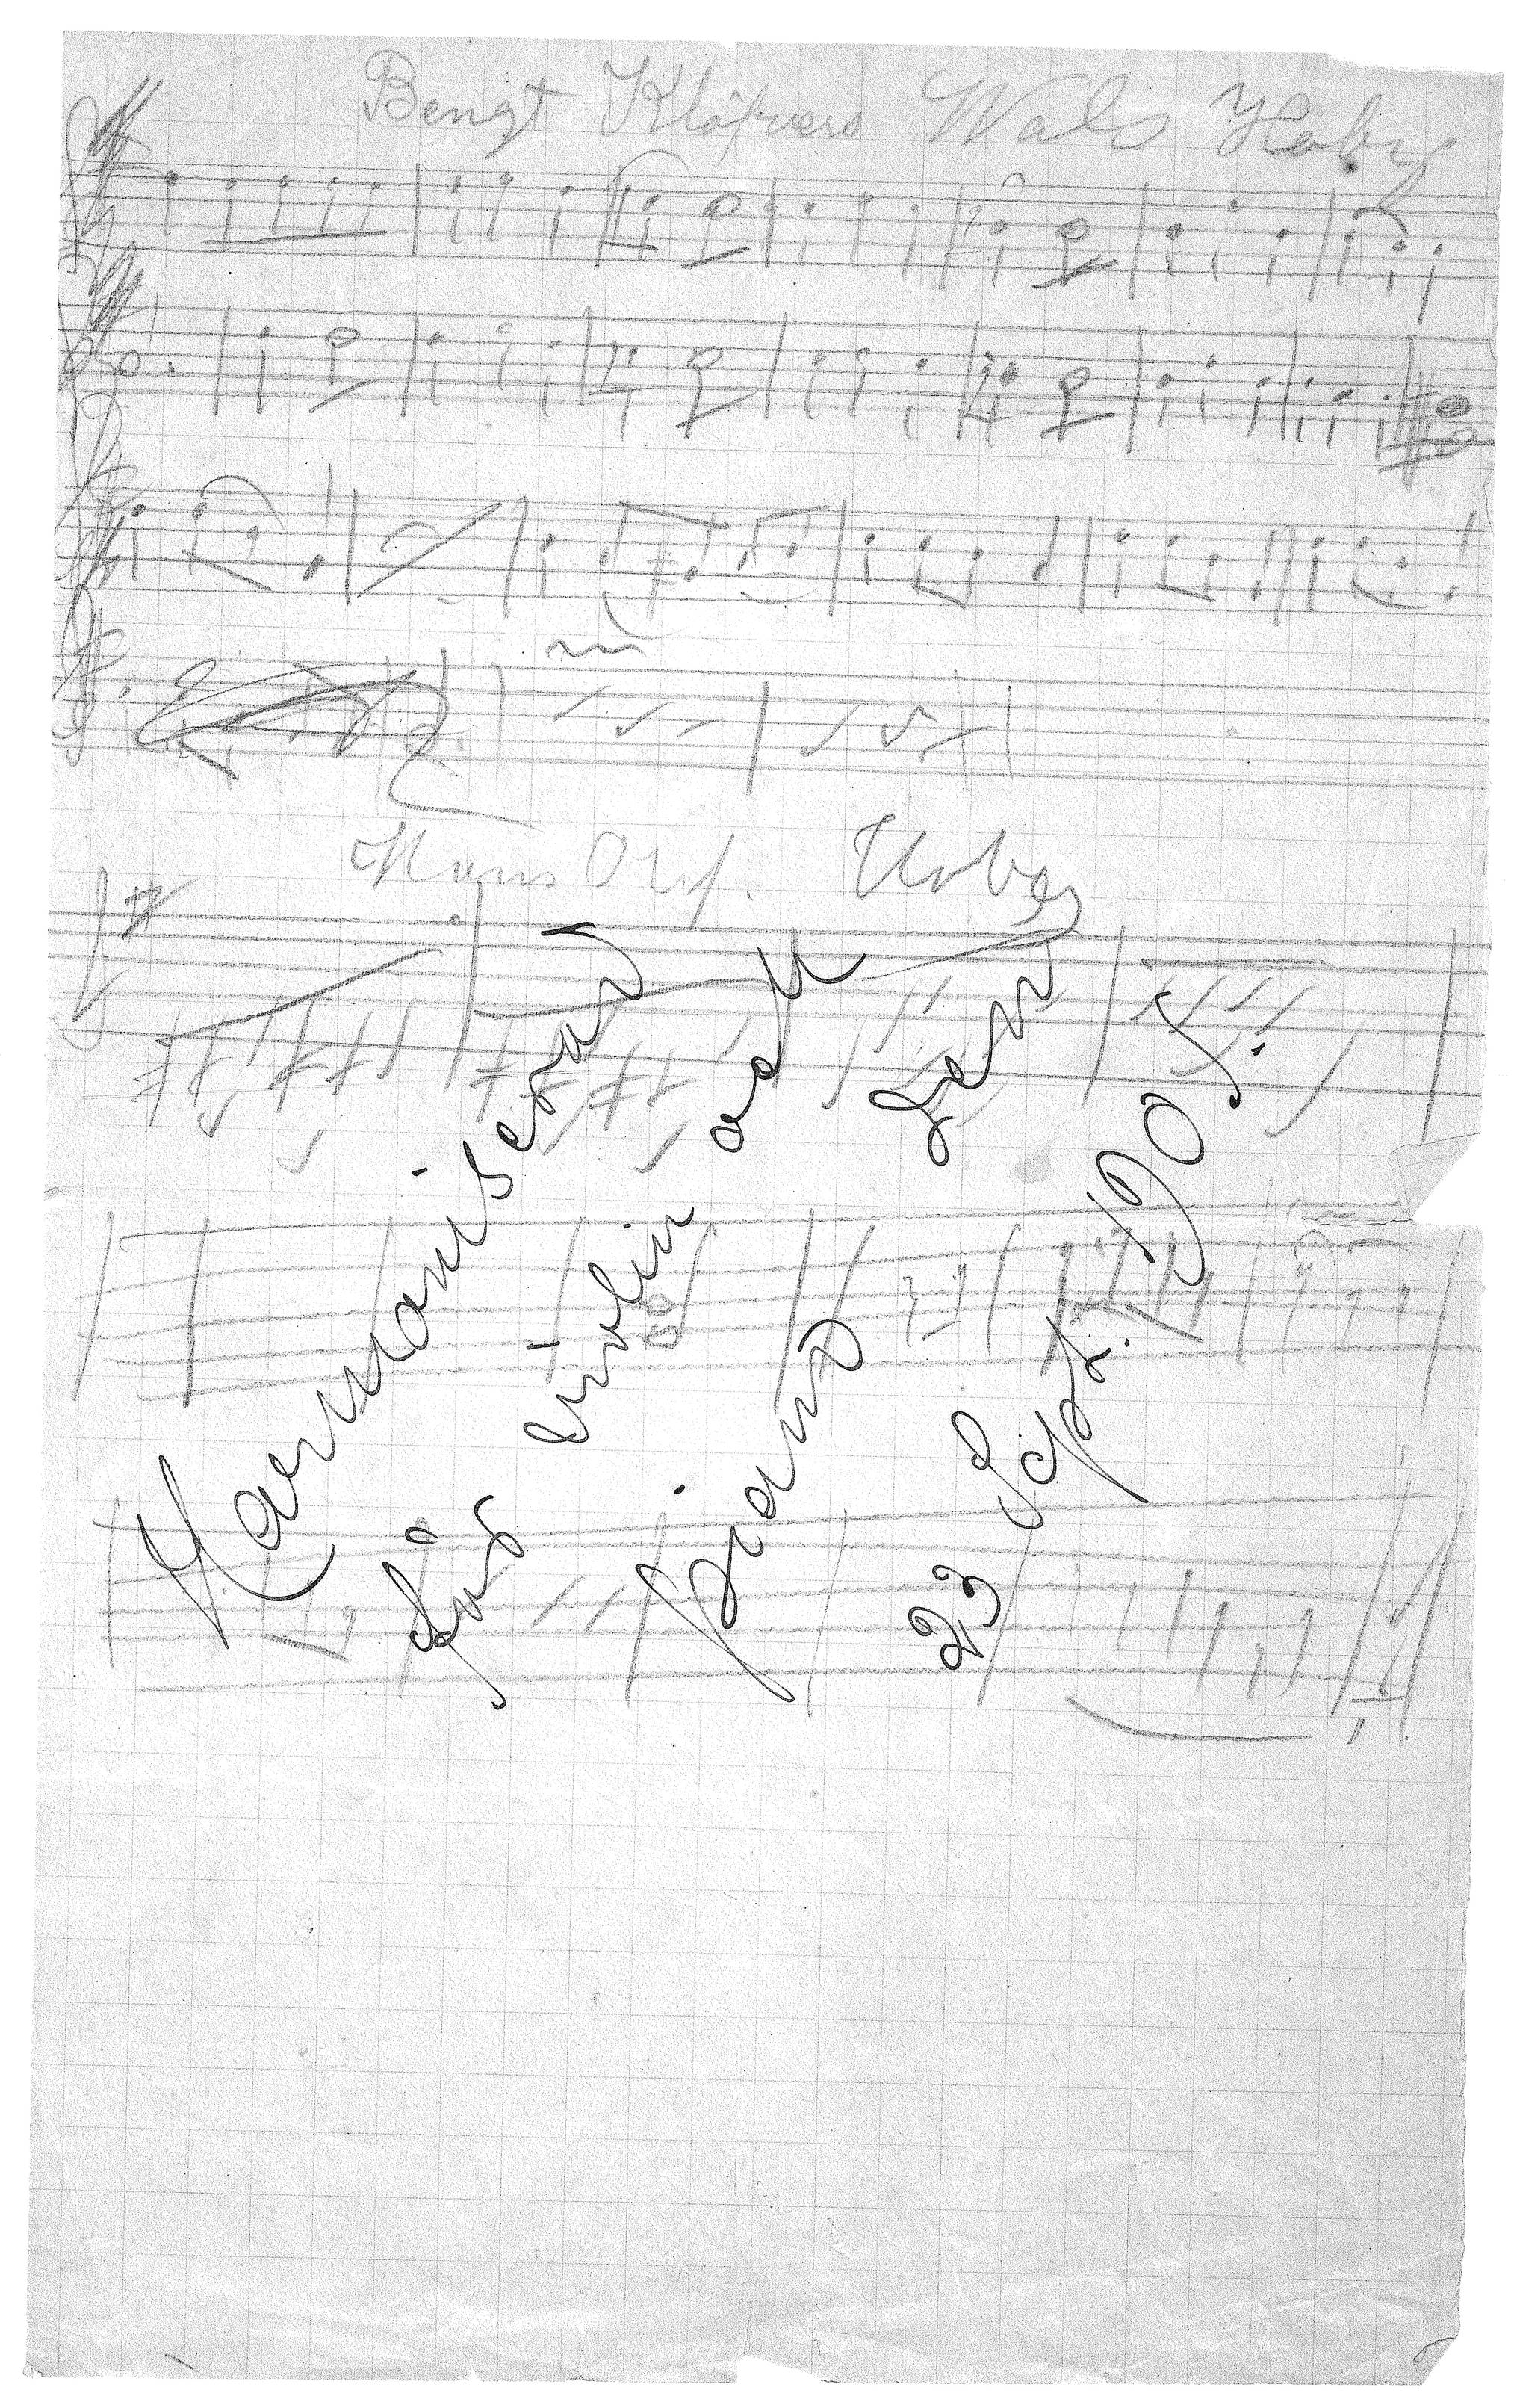 Bengt Klöfvers Wals Haby
Hans Ols.
Harmoniserad
för violin och
piano
23 Sept. 1905.